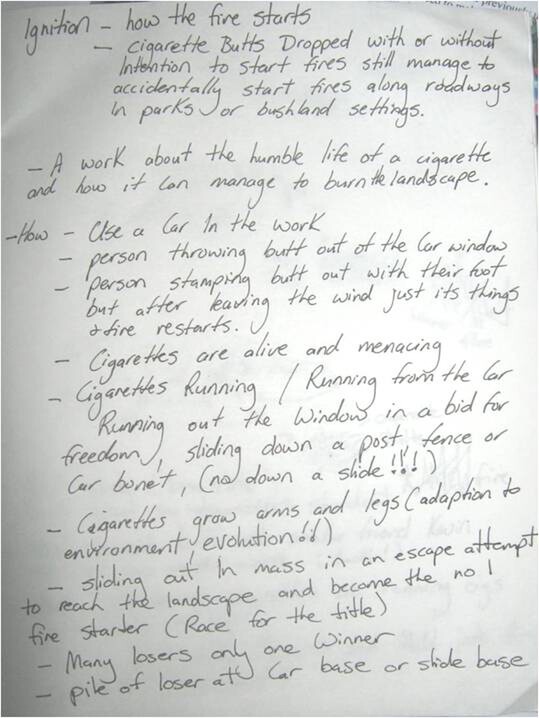 previously
Ignition - how the fire starts
- cigarette Butts Dropped with or without
Intention to start fires still manage to
accidentally start fires along roadways
In parks or bushland settings.
- A work about the humble life of a cigarette
and how it can manage to burn the landscape.
-How - Use a Car In the work
- person throwing butt out of the Car window
- person stamping butt out with their foot
but after leaving the wind just its things
& fire restarts.
- Cigarettes are alive and menacing
- Cigarettes Running / Running from the Car
Running out the window in a bid for
freedom, sliding down a post, fence or
Car bonet, (no down a slide !!!)
- Cigarettes grow arms and legs (adaption to
environment, evolution!!)
- sliding out In mass in an escape attempt
to reach the landscape and become the no 1
fire starter (Race for the title)
- Many losers only one winner
- pile of loser att Car base or slide base